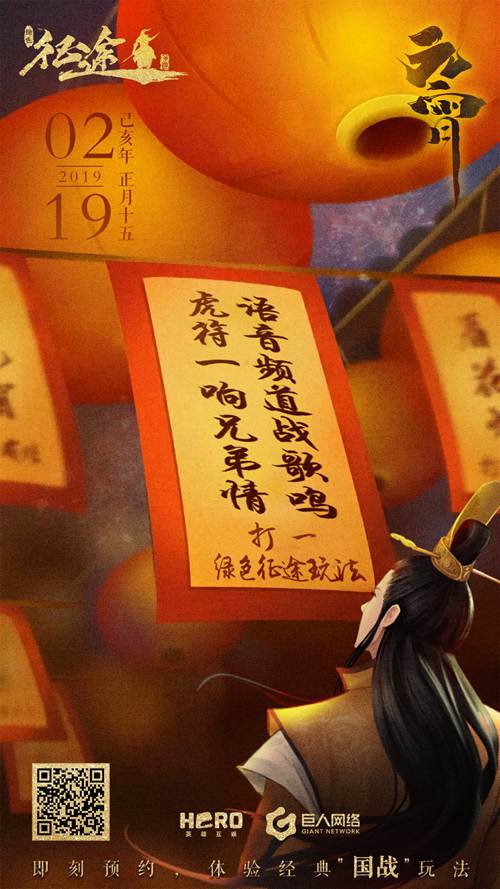 征途
元宵
02
2019
19
己亥年 正月十五
语音频道战歌鸣
虎符一响兄弟情
打一
绿色征途玩法
HERO
英雄互娱
巨人网络
GIANT NETWORK
即刻预约，体验经典“国战”玩法